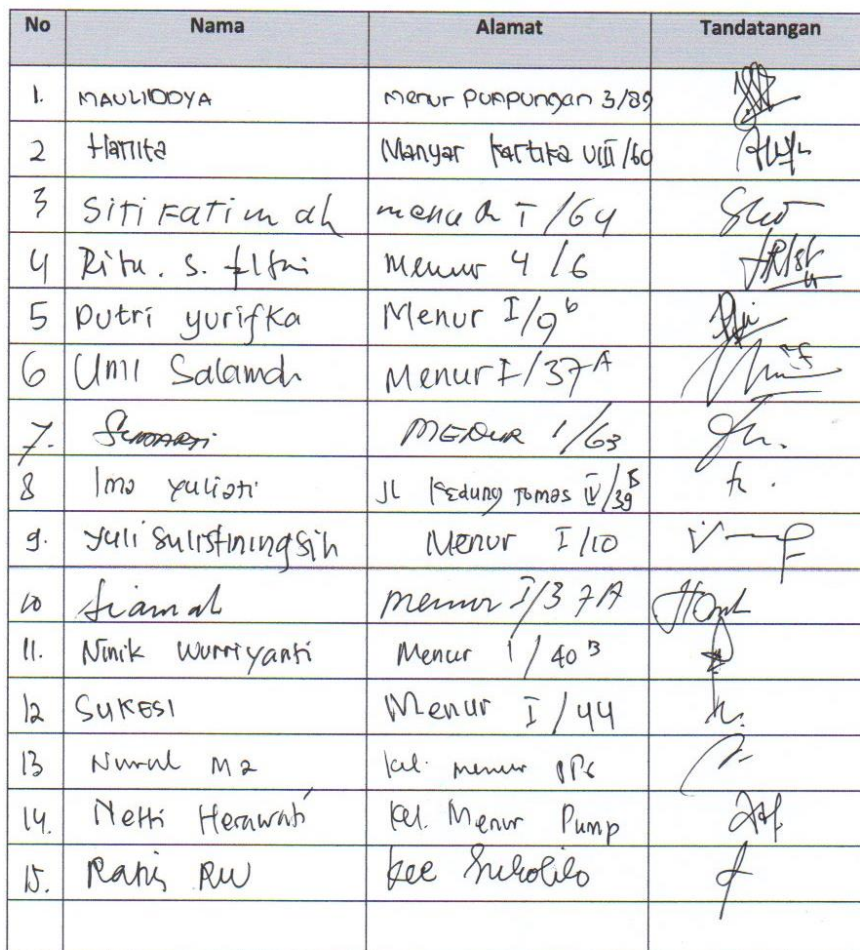 No Nama Alamat Tandatangan
1. MAULIDDYA Menur PUMPUNGAN 3/89
2 Hanita Manyar Kartika VIII/60
3 Siti Fatimah I/64
4 Ritu. S. Menur 4/6
5 Putri yurifka Menur I/9b
6 Umi Salamah Menur I/37A
7. MENUR 1/63
8 Ima Yuliati JL Kedung Tomas IV/39B
9. Yuli Sulistiningsih Menur I/10
10 Menur I/37A
11. Ninik Wurriyanti Menur 1/40B
12 SUKESI Menur I/44
13 Nurul kel. menur
14. Netti Herawati Kel. Menur Pump
15. Ratis RW kec Sukolilo